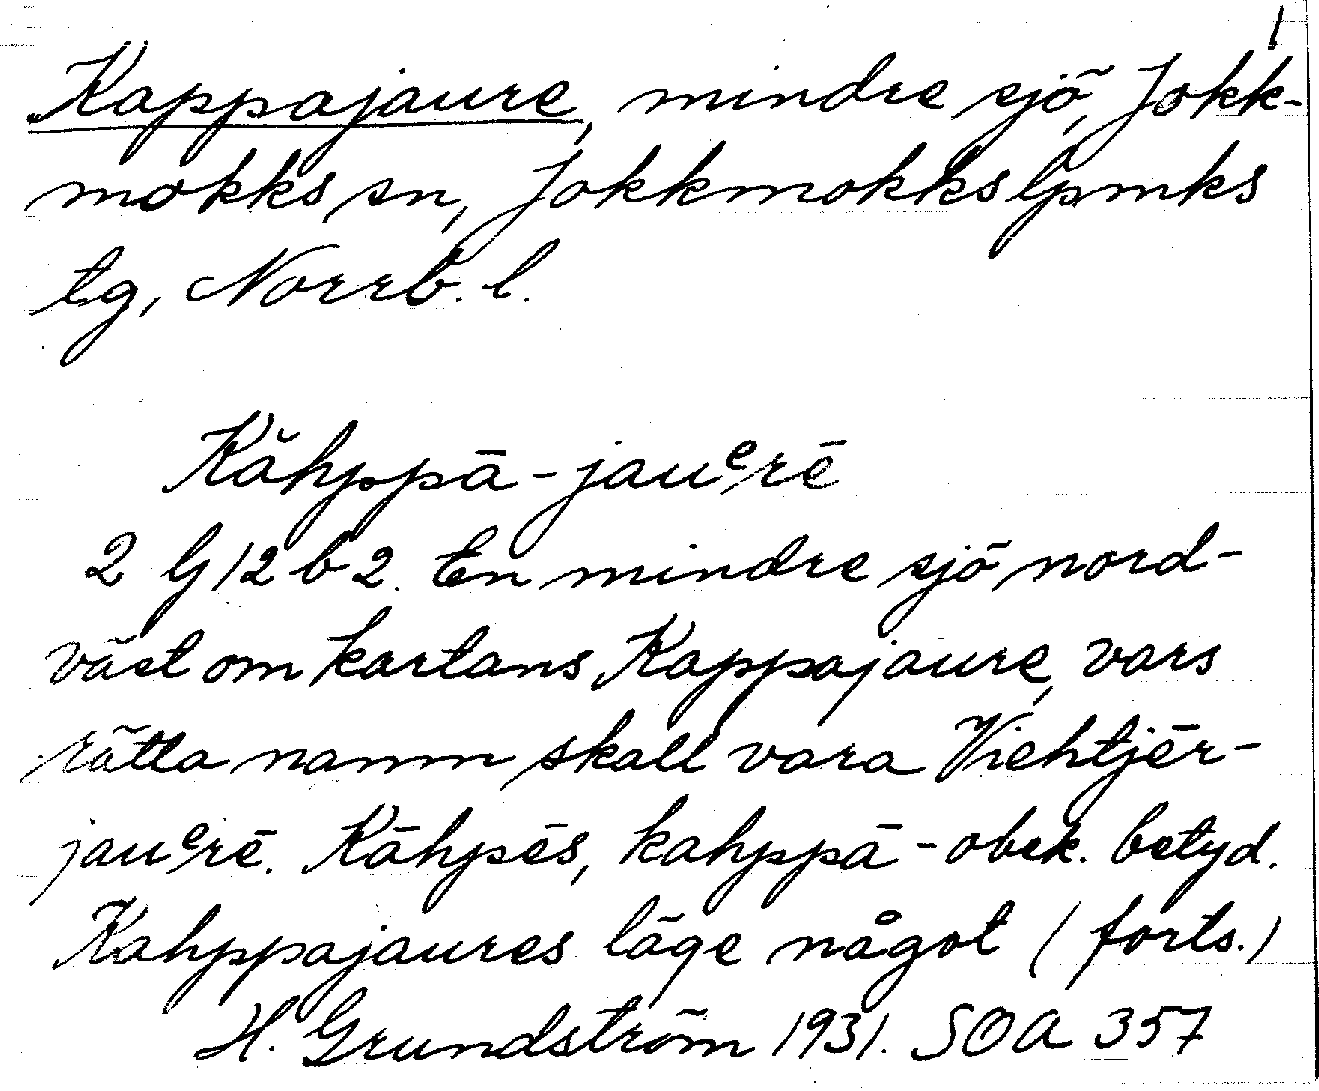 1
Kappajaure, mindre sjö, Jokk-
mokks sn, Jokkmokks lpmks
tg, Norrb. l.
Kǎhppā-jauᵉrē
2 G 12 b 2. En mindre sjö nord-
väst om kartans Kappajaure, vars
rätta namn skall vara Viehtjēr-
jauᵉrē. Kāhpēs, kahppā- obek. betyd.
Kahppajaures läge något (forts.)
H. Grundström 1931. SOA 357